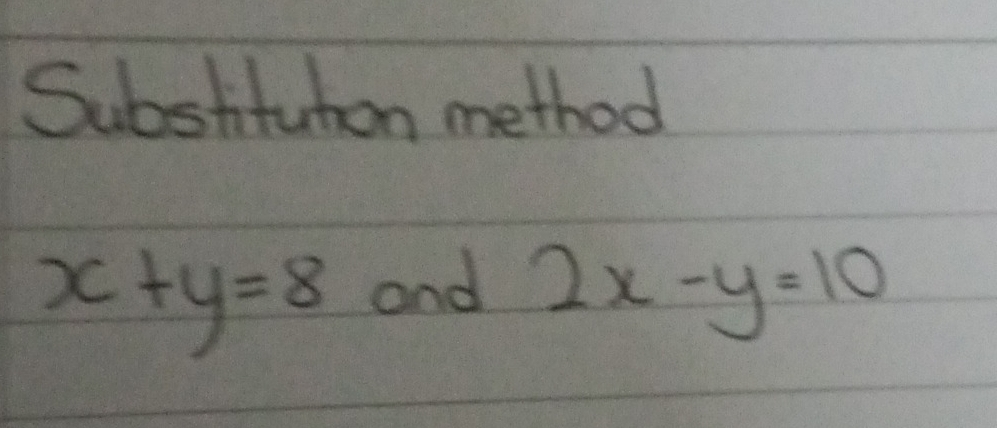 Substitution method
x+y=8 and 2x-y=10